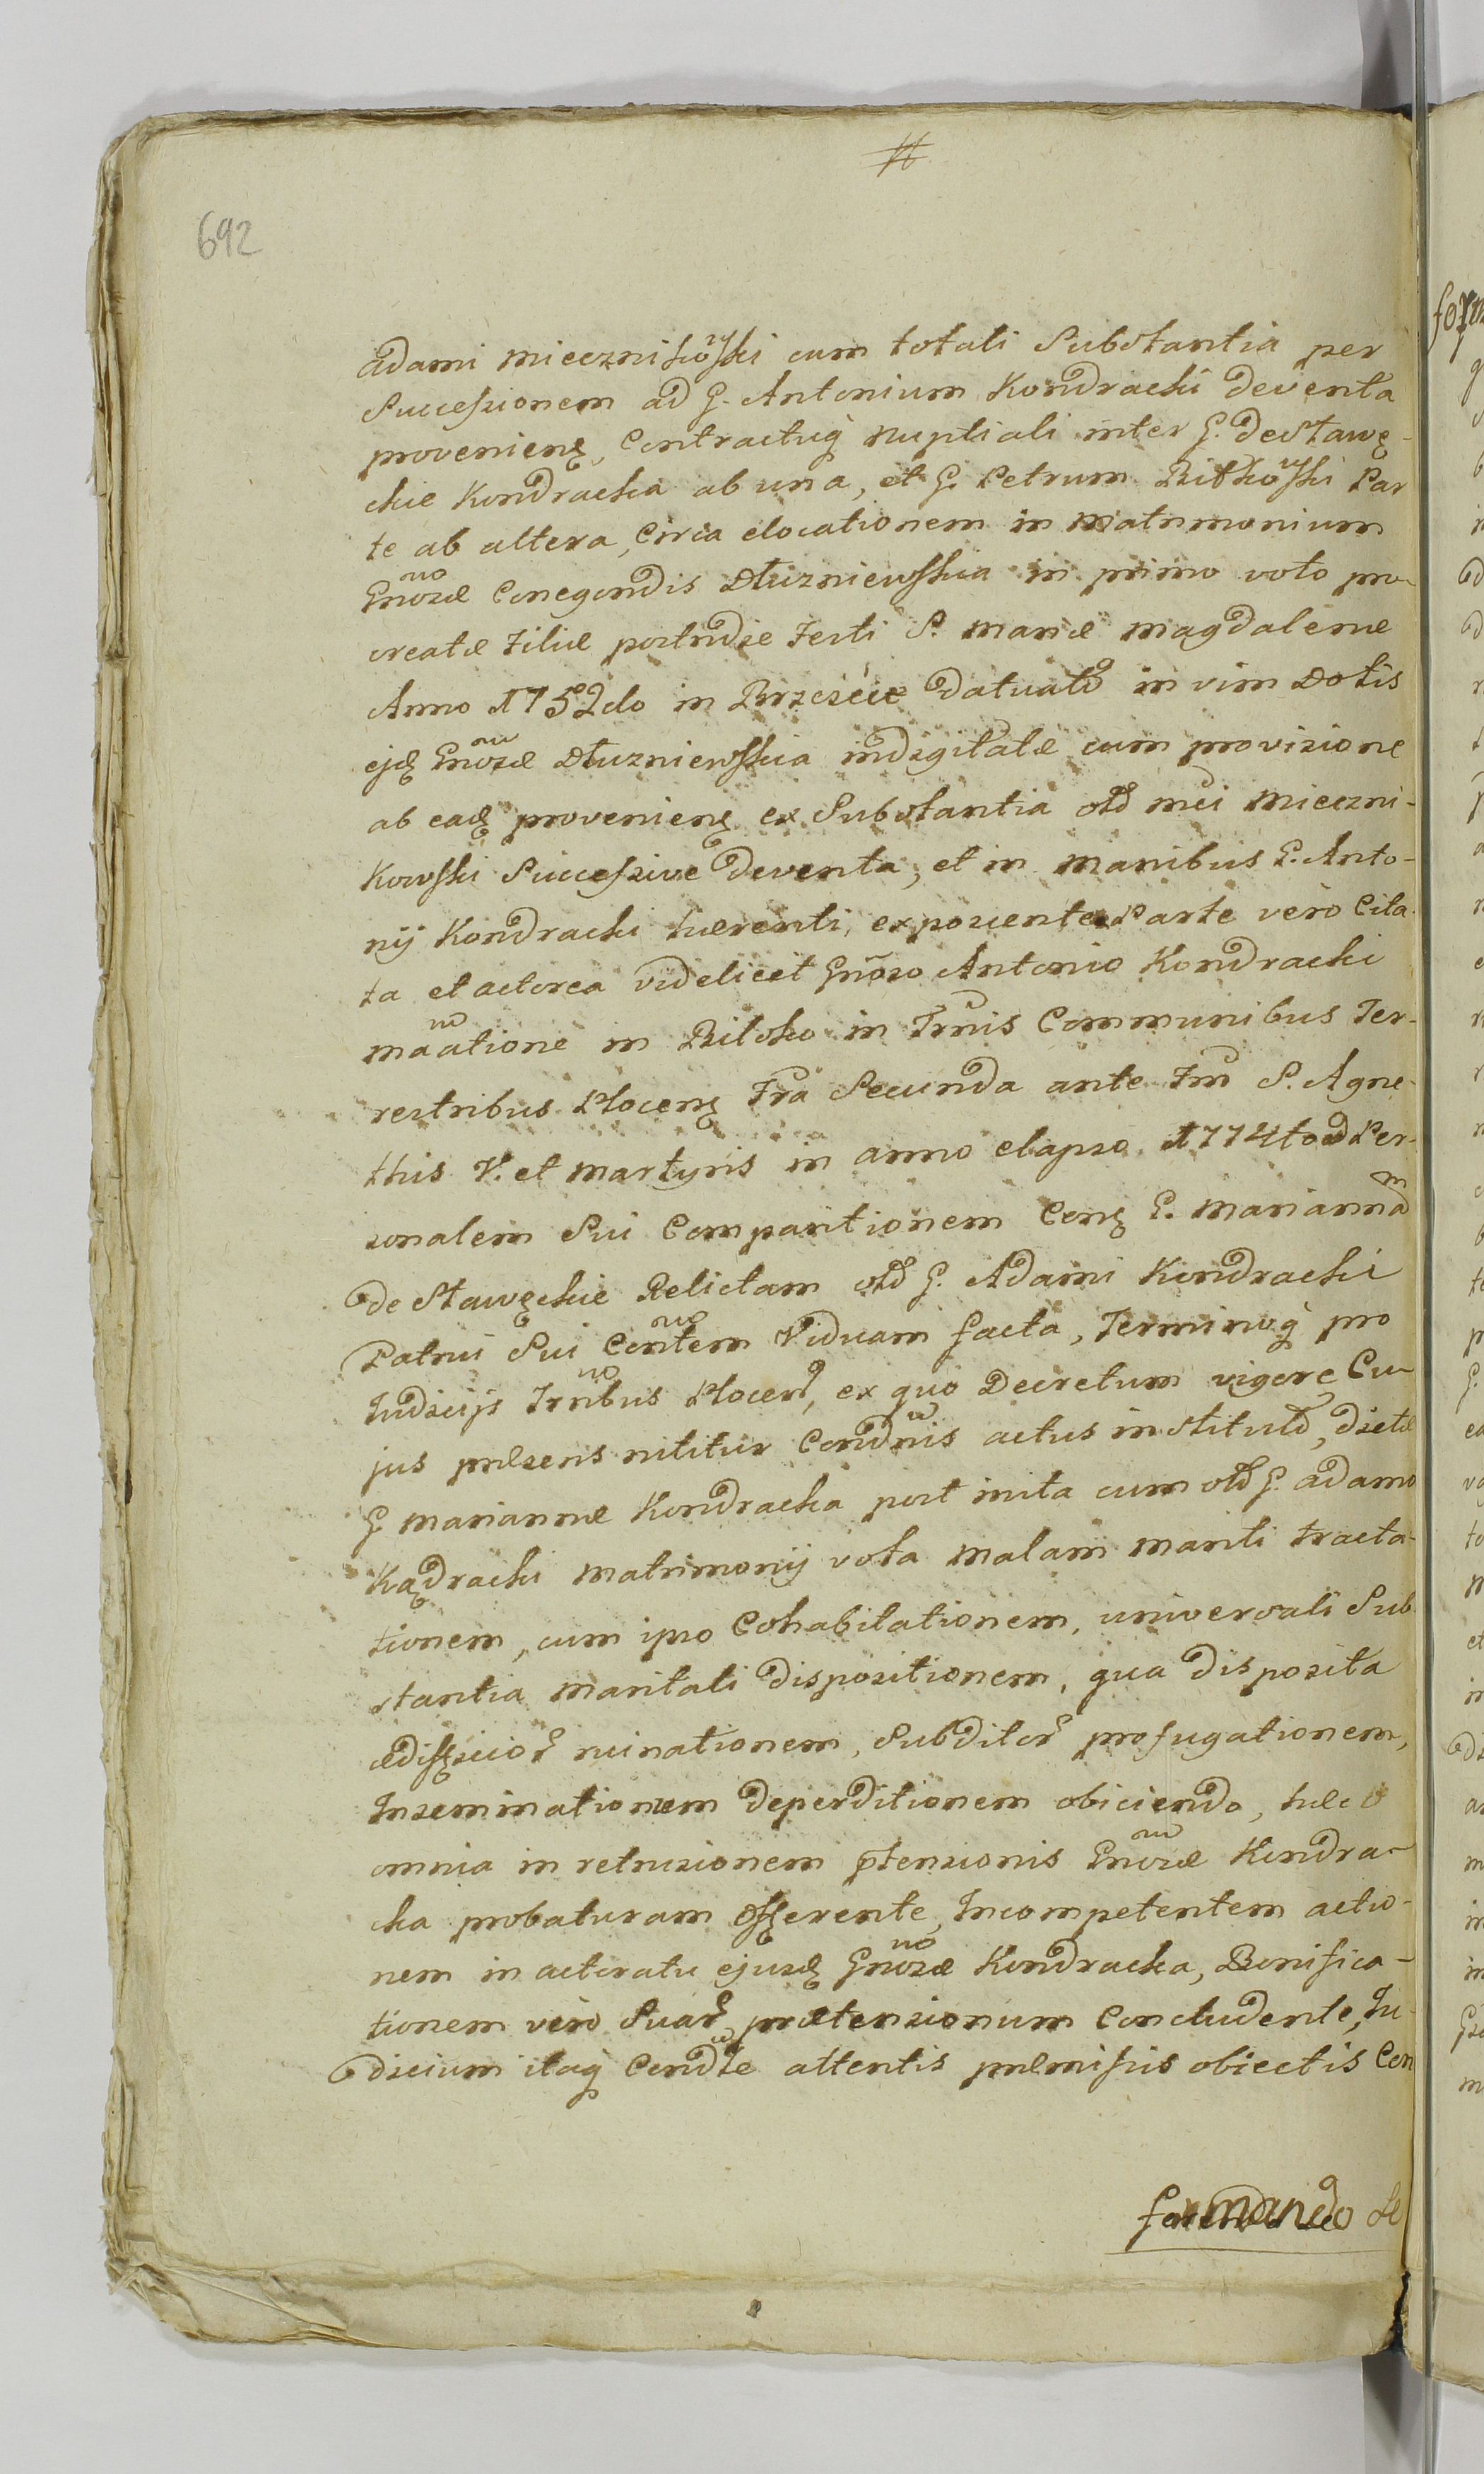 692
Adami Miecznikowski cum totali Substantia per
Successionem ad G. Antonium Kondracki deventa
provenienę, Contractuq nuptiali inter G. de Stawę-
ckie Kondracka ab una, et G. Petrum Bitkowski Par
te ab altera, Circa elocationem in Matrimonium
Gnosæ Conegondis Dłuzniewskia in primo voto pro-
creatæ Filiæ postridie Festi S. Mariæ Magdalenæ
Anno 1752do in Brzeście datuato in vim Dotis
ejdę Gnosæ Dłuzniewskia indigitatæ cum provisione
ab eadę provenienę ex Substantia old mei Mieczni-
kowski Successive deventa, et in manibus G. Anto-
nij Kondracki hærenti, exponente Parte vero Cita-
ta et actorea videlicet Gnoso Antonio Kondracki
maatione in Bilsko in Trnis Communibus Ter-
restribus Plocenę Fra Secunda ante Fm S. Agne-
this V. et Martyris in anno elapso 1774to ad Per-
sonalem Sui Comparitionem Conę G. Mariannam
de Stawęckie Relictam old G. Adami Kondracki
Patrui Sui Contem Viduam facta, Terminoq pro
Judicijs Trribus Plocen, ex quo Decretum vigore Cu-
jus præsens nititur Condnis actus institutd, dictæ
G. Mariannæ Kondracka post inita cum old G. Adamo
Kądracki Matrimonij vota Malam Mariti tracta-
tionem, cum ipso Cohabitationem, universali Sub-
stantia Maritali dispositionem, qua disposita
ædificior ruinationem, Subditor profugationem,
Inseminationem deperditionem obiciendo, hæc
omnia in retrusionem ptensionis Gnosæ Kondra-
cka probaturam offerente, Incompetentem actio-
nem in actoratu ejusdę Gnosæ Kondracka, Bonifica-
tionem vero Suar prætensionum Concludente, Ju-
dicium itaq Condte attentis præmissis obiectis Con
formando